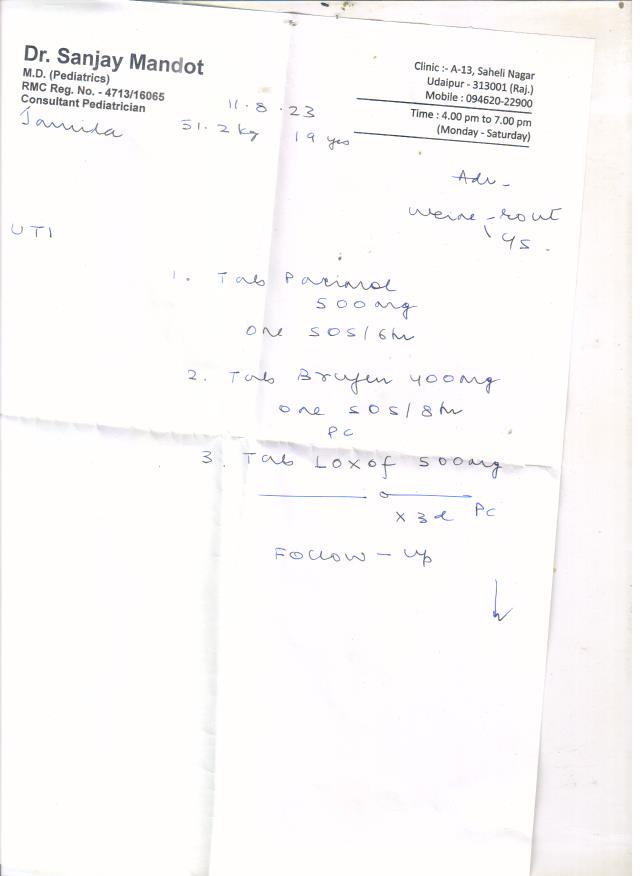 Dr. Sanjay Mandot
M.D. (Pediatrics)
RMC Reg. No. - 4713/16065
Consultant Pediatrician
Clinic :- A-13, Saheli Nagar
Udaipur - 313001 (Raj.)
Mobile : 094620-22900
Time : 4.00 pm to 7.00 pm
(Monday - Saturday)
11.8.23
Jamida 51.2 kg 19 yrs
Adv -
Urine - rout
UTI
1. Tab Pacimol
500mg
one SOS/6hr
2. Tab Brufen 400mg
one SOS/8hr
PC
3. Tab Loxof 500mg
x 3d PC
Follow-up